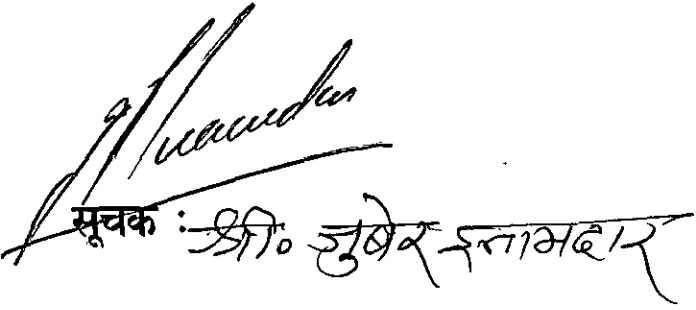 सूचक : श्री. जुबेर इनामदार